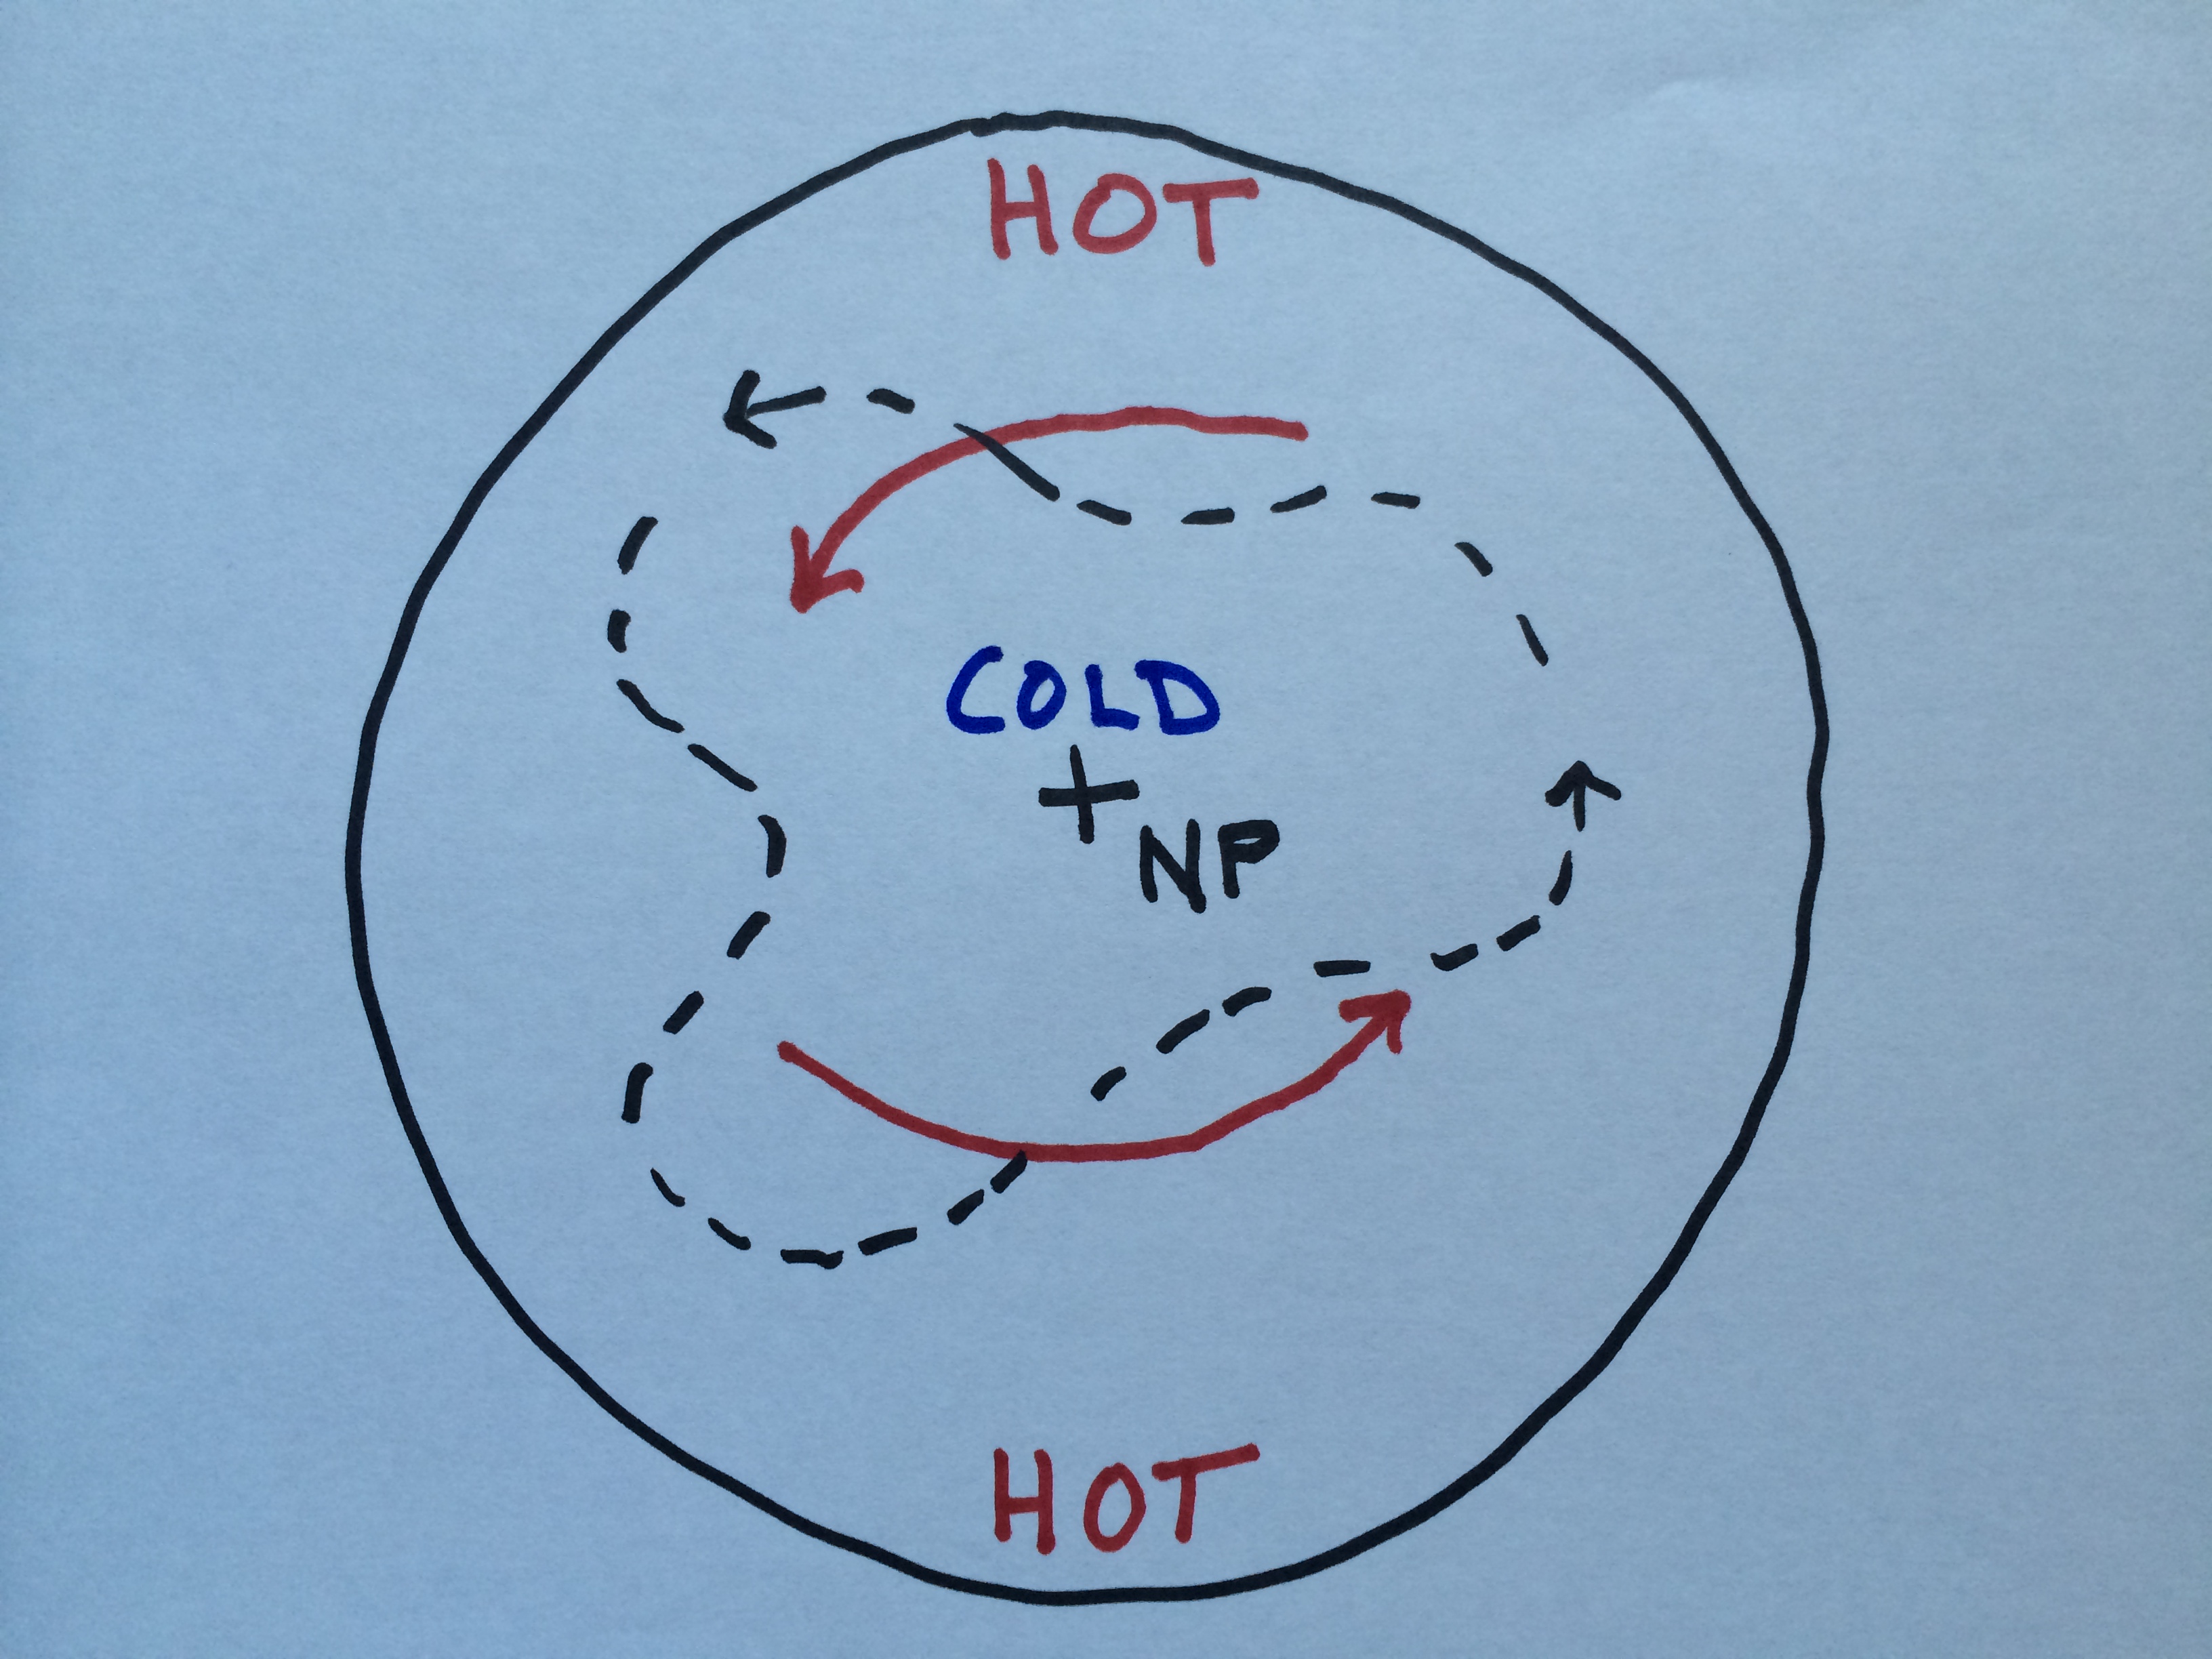 HOT
COLD
NP
HOT